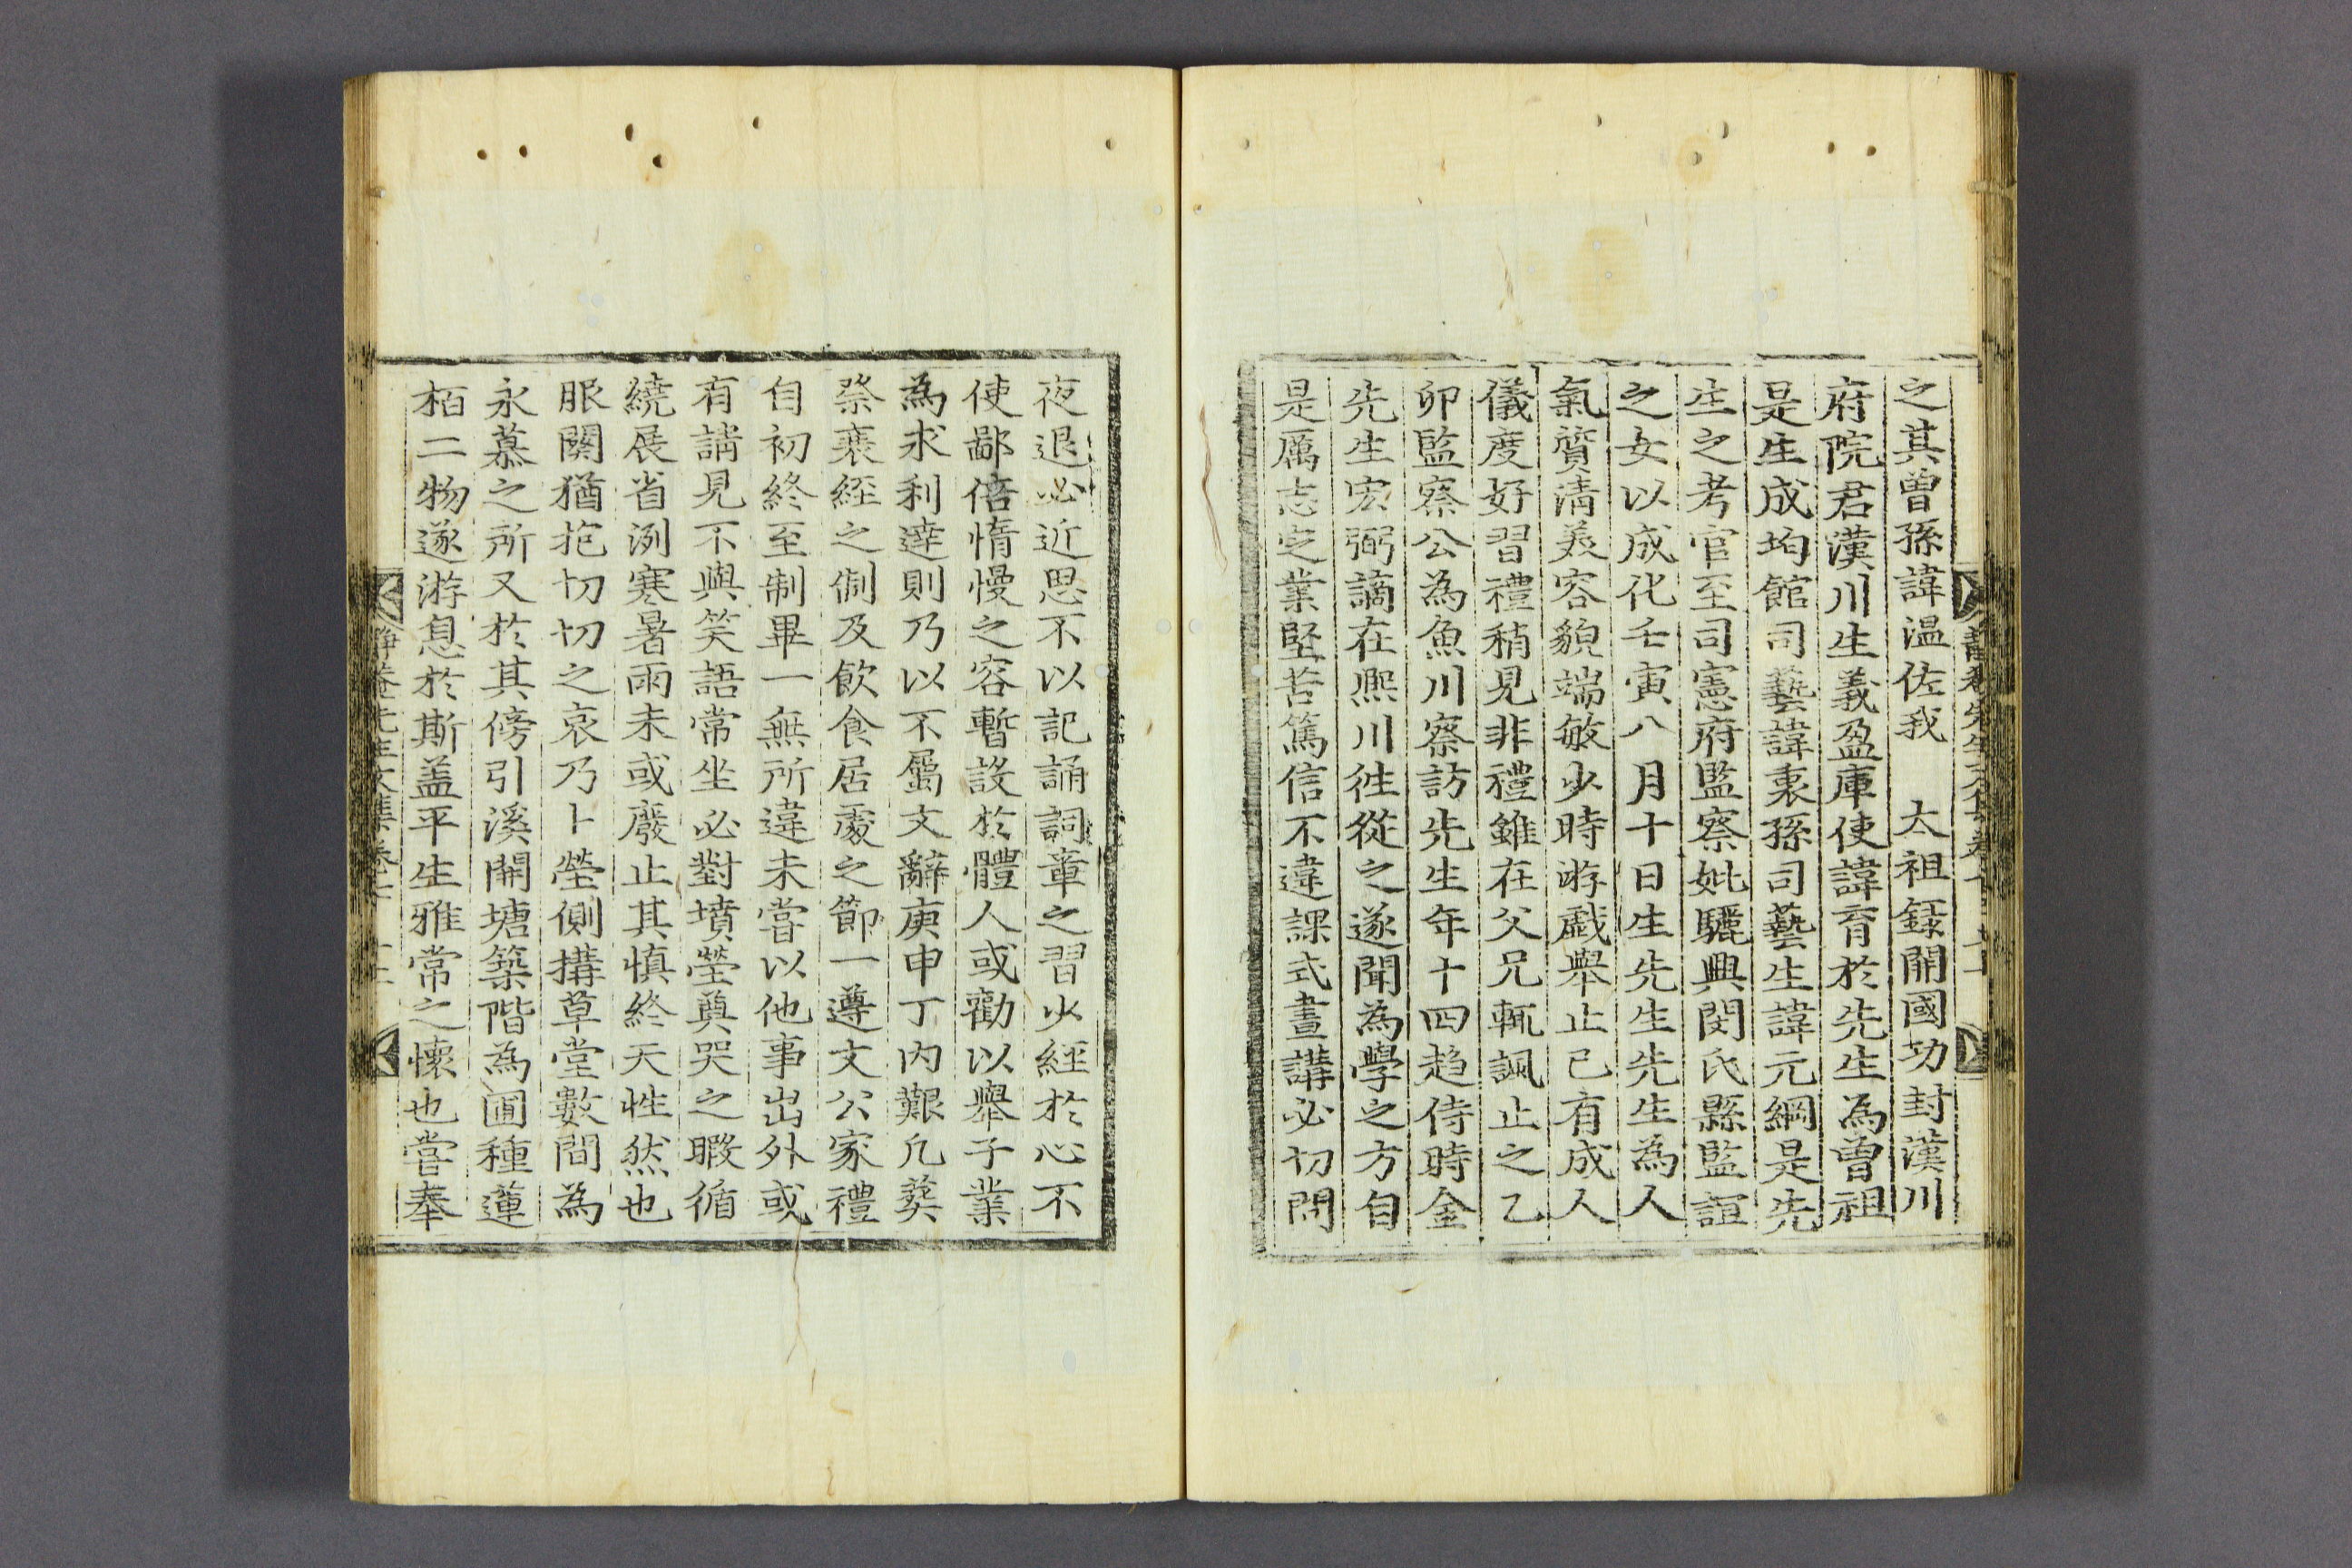 之其曽孫諱温佐我　太祖録開國功封漢川
府院君漢川生義盈庫使諱育於先生為曽祖
是生成均館司藝諱衷孫司藝生諱元綱是先
生之考官至司憲府監察妣驪興閔氏縣監誼
之女以成化壬寅八月十日生先生先生為人
氣質淸美容貌端敏少時游戱舉止已有成人
儀度好習禮稍見非禮雖在父兄輒諷止之乙
卯監察公為魚川察訪先生年十四趍侍時金
先生宏弼謫在熈川徃從之遂聞為學之方自
是厲志定業堅苦篤信不違課式晝講必切問
夜退必近思不以記誦詞章之習少經於心不
使鄙倍惰慢之容暫設於體人或勸以舉子業
為求利達則乃以不屬文辭庚申丁内艱凢葬
祭衰絰之制及飲食居處之節一遵文公家禮
自初終至制畢一無所違未嘗以他事出外或
有請見不與笑語常坐必對墳塋奠哭之暇循
繞展省洌寒暑雨未或廢止其慎終天性然也
服闋猶抱切切之哀乃卜塋側搆草堂數間為
永慕之所又於其傍引溪開塘築階為圃種蓮
栢二物遂游息於斯盖平生雅常之懷也嘗奉
靜菴先生文集卷之